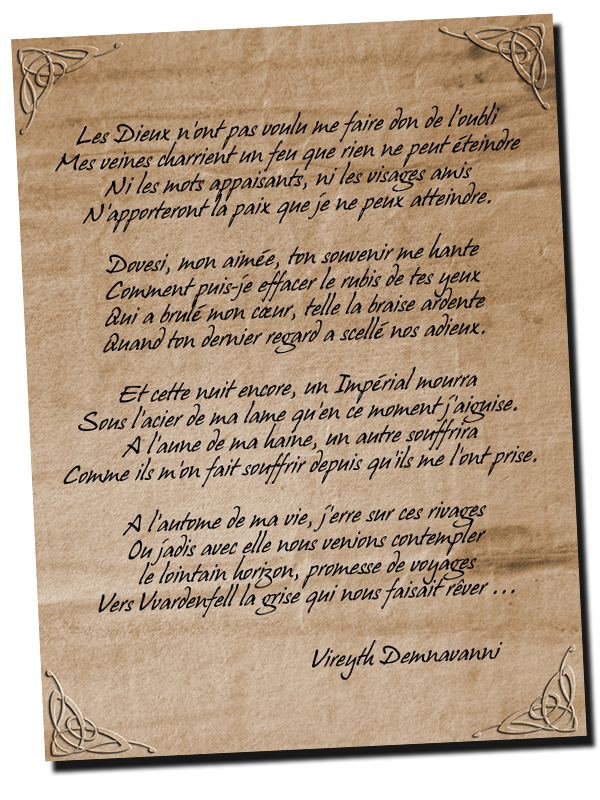 Les Dieux n'ont pas voulu me faire don de l'oubli
Mes veines charrient un feu que rien ne peut éteindre
Ni les mots appaisants, ni les visages amis
N'apporteront la paix que je ne peux atteindre.
Dovesi, mon aimée, ton souvenir me hante
Comment puis-je effacer le rubis de tes yeux
Qui a brulé mon cœur, telle la braise ardente
Quand ton dernier regard a scellé nos adieux.
Et cette nuit encore, un Impérial mourra
Sous l'acier de ma lame qu'en ce moment j'aiguise.
A l'aune de ma haine, un autre souffrira
Comme ils m'on fait souffrir depuis qu'ils me l'ont prise.
A l'autome de ma vie, j'erre sur ces rivages
Ou jadis avec elle nous venions contempler
le lointain horizon, promesse de voyages
Vers Vvardenfell la grise qui nous faisait rêver ...
Vireyth Demnavanni